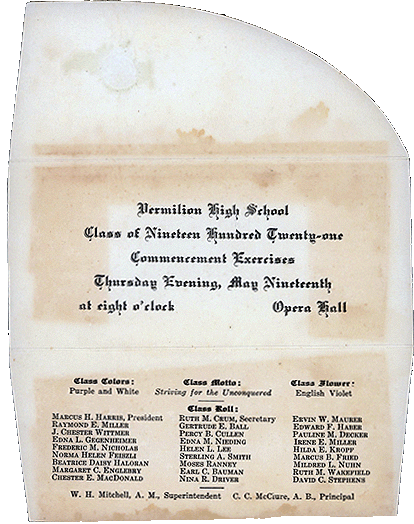 Vermilion High School
Class of Nineteen Hundred Twenty-one
Commencement Exercises
Thursday Evening, May Nineteenth
at eight o'clock Opera Hall
Class Colors: Class Motto: Class Flower:
Purple and White Striving for the Unconquered English Violet
Class Roll:
MARCUS H. HARRIS, President RUTH M. CRUM, Secretary ERVIN W. MAURER
RAYMOND E. MILLER GERTRUDE E. BALL EDWARD F. HABER
J. CHESTER WITTMER PERCY B. CULLEN PAULINE M. DECKER
EDNA L. GEGENHEIMER EDNA M. NIEDING IRENE E. MILLER
FREDERIC M. NICHOLAS HELEN L. LEE HILDA E. KROPF
NORMA HELEN FEISZLI STERLING A. SMITH MARCUS B. FRIED
BEATRICE DAISY HALORAN MOSES RANNEY MILDRED L. NUHN
MARGARET C. ENGLEBRY EARL C. BAUMAN RUTH M. WAKEFIELD
CHESTER E. MACDONALD NINA R. DRIVER DAVID C. STEPHENS
W. H. Mitchell, A. M., Superintendent C. C. McClure, A. B., Principal